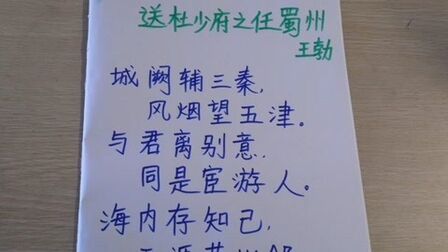 送杜少府之任蜀州
王勃
城阙辅三秦,
风烟望五津。
与君离别意,
同是宦游人。
海内存知己,